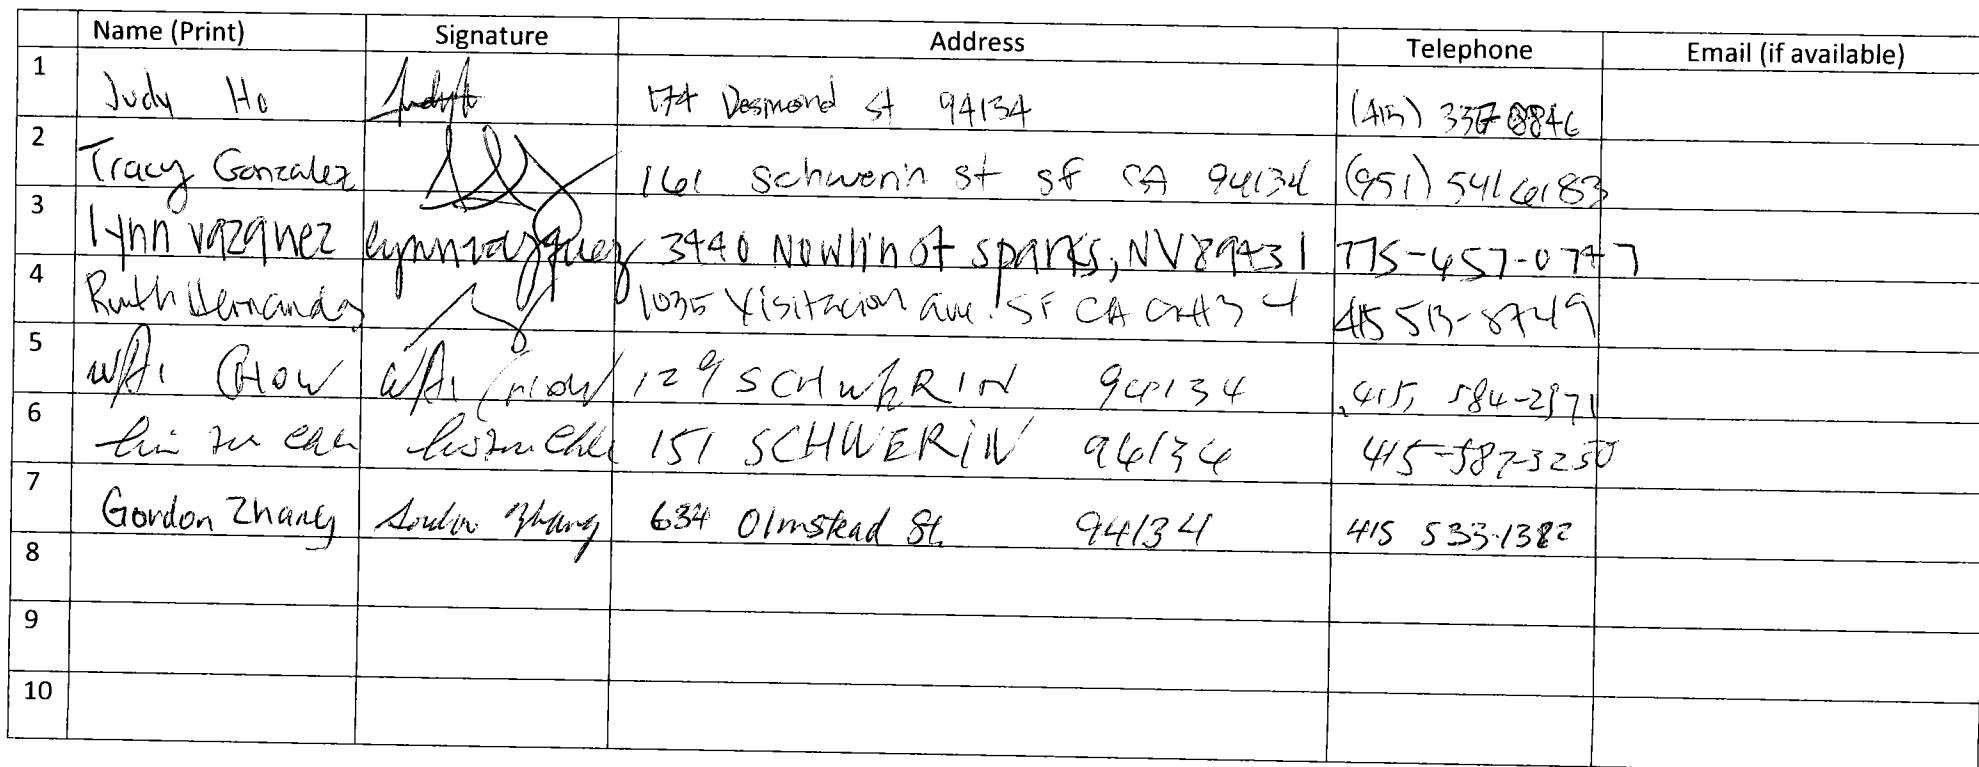 Name (Print) Signature Address Telephone Email (if available)
1 Judy Ho 174 Desmond st 94134 (415)
2 Tracy Gonzalez 161 Schwerin st sf CA 94134 (951) 541 6183
3 lynn vazquez lynn vazquez 3440 Nowlin st sparks, NV 89431 775-457-0747
4 Ruth Hernandez 1035 Visitacion ave. SF CA 94134 415 513-8749
5 CHOW 129 SCHWERIN 94134 415, 584-2971
6 151 SCHWERIN 94134 415-587-3250
7 Gordon Zhang Gordon Zhang 634 Olmstead St. 94134 415 533-1382
8
9
10